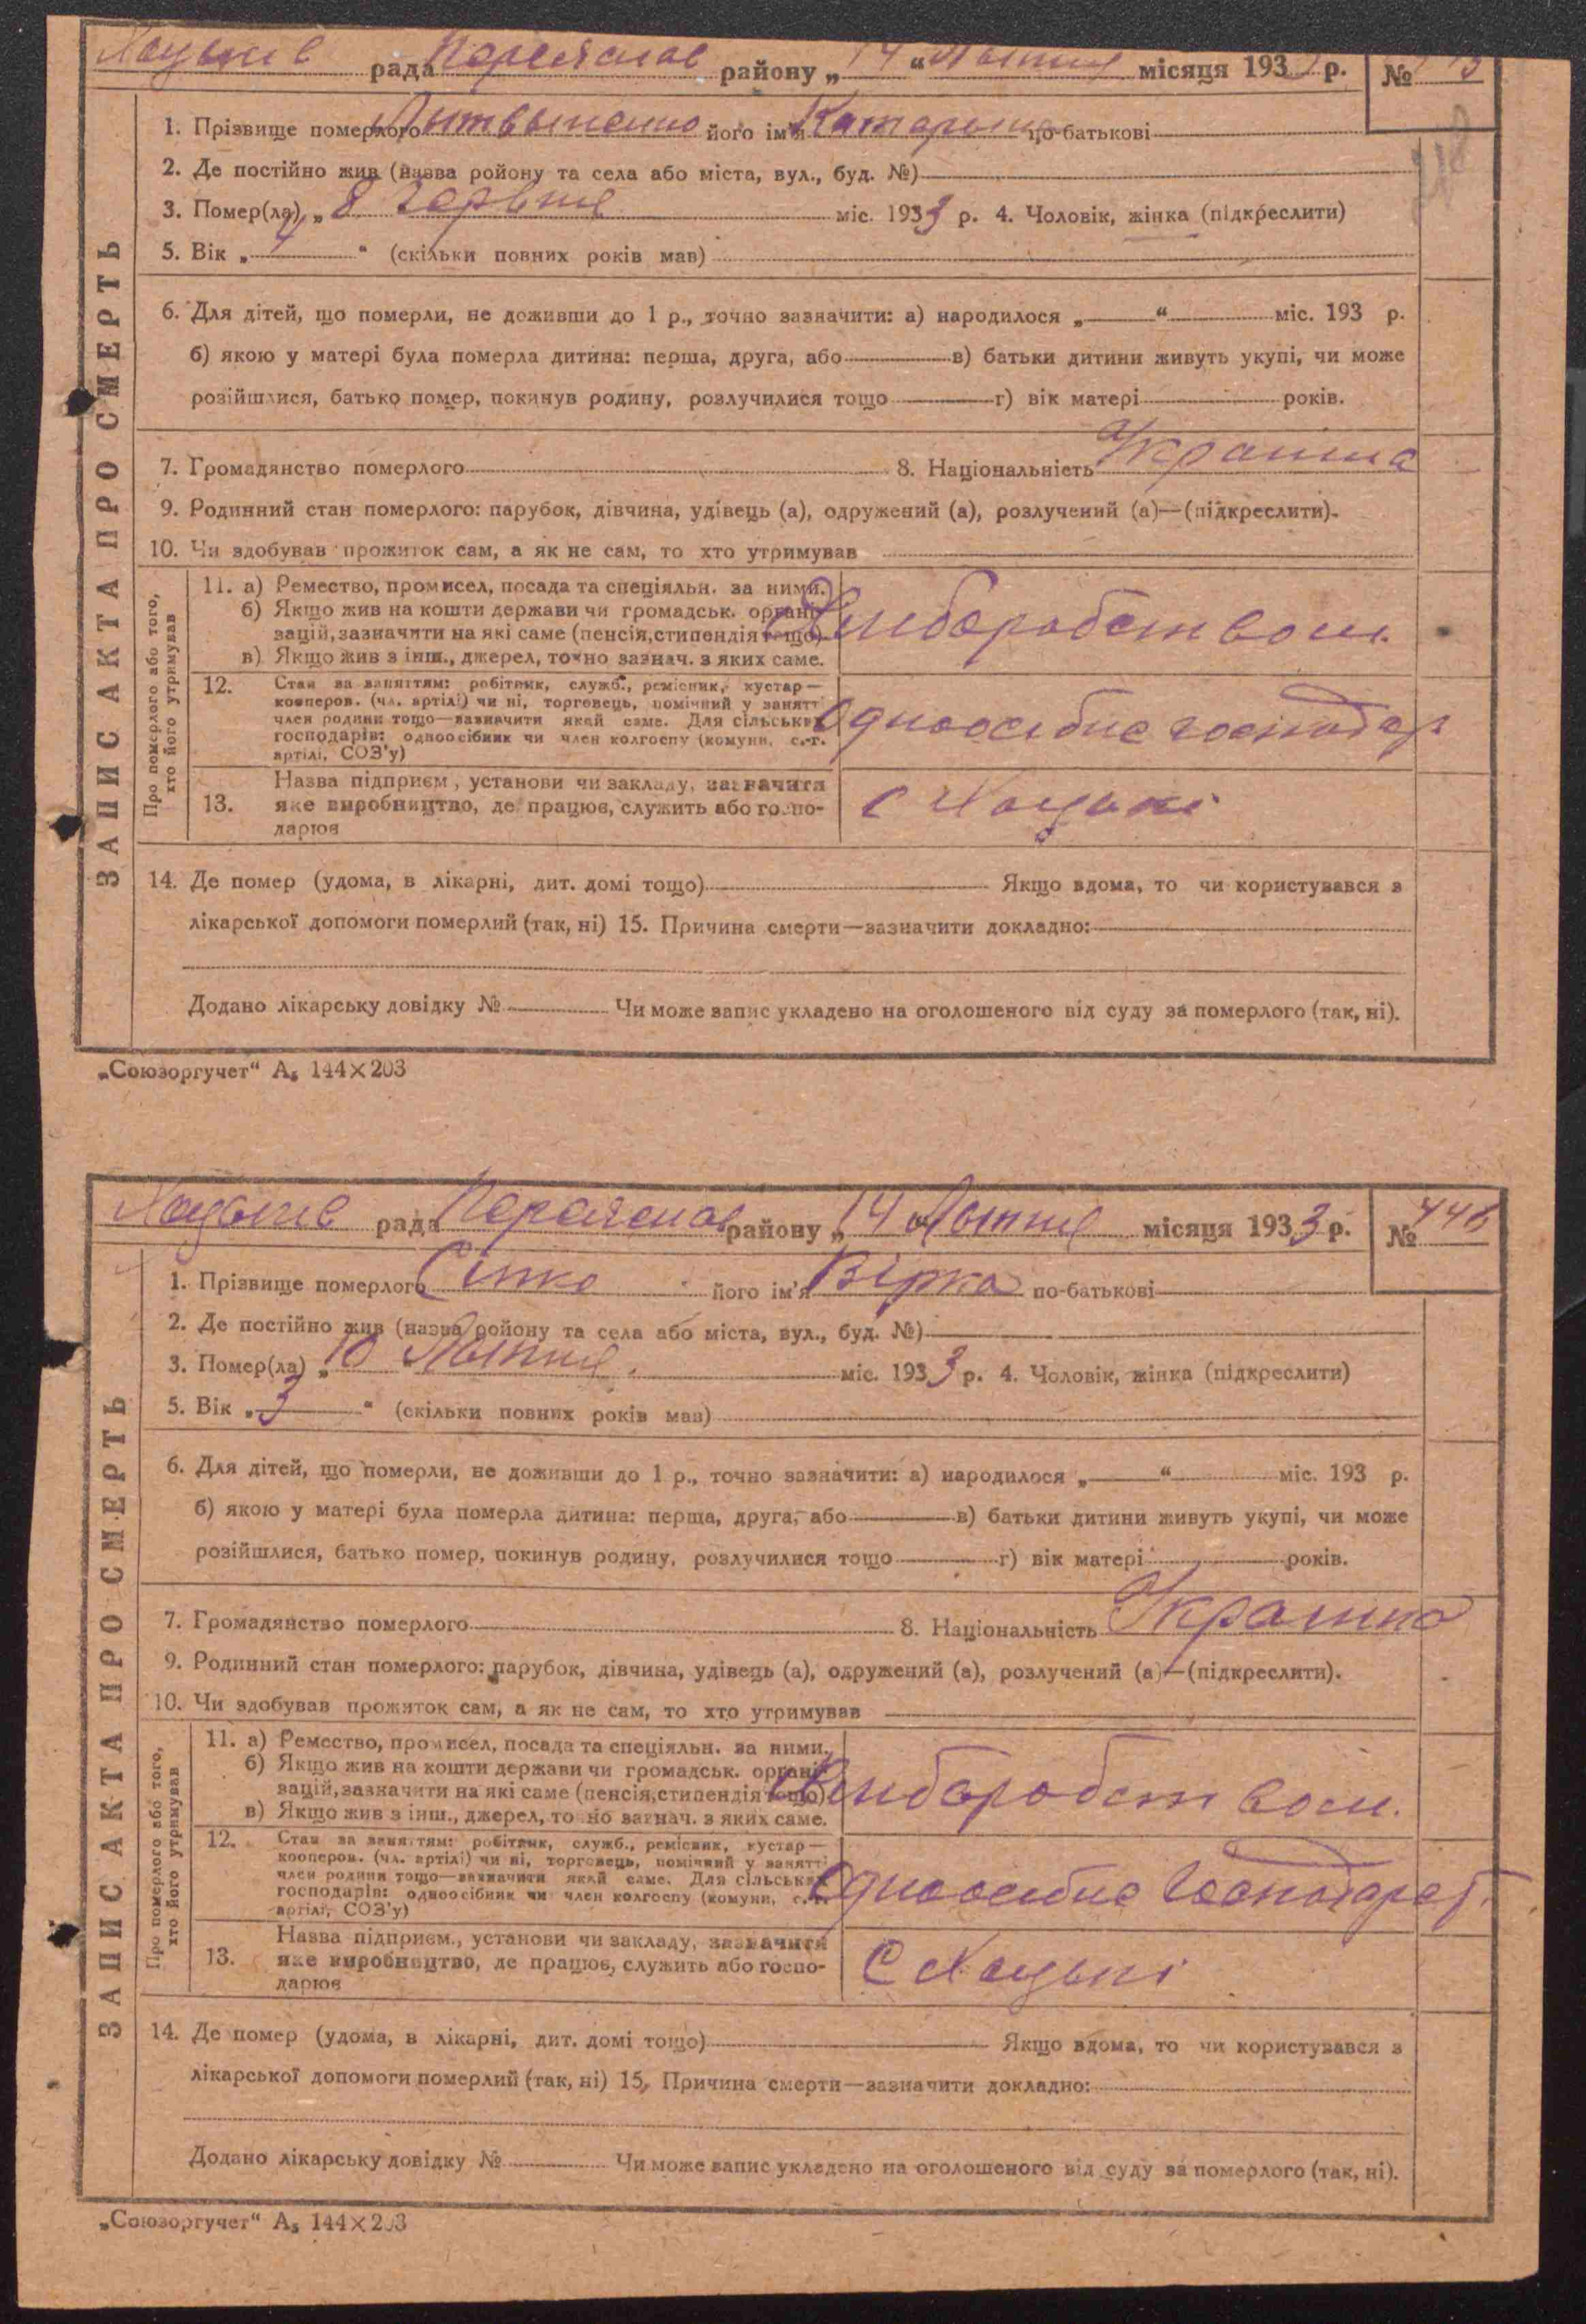 рада Переяслав району „14“ Липня місяця 1933 р. №
1. Прізвище померлого Литвиненко його ім'я Катерина по-батькові
2. Де постійно жив (назва ройону та села або міста, вул., буд. №)
3. Помер(ла) „8 Червня міс. 1933 р. 4. Чоловік, жінка (підкреслити)
5. Вік „4“ (скільки повних років мав)
6. Для дітей, що померли, не доживши до 1 р., точно зазначити: а) народилося „ “ міс. 193 р.
б) якою у матері була померла дитина: перша, друга, або в) батьки дитини живуть укупі, чи може
розійшлися, батько помер, покинув родину, розлучилися тощо г) вік матері років.
7. Громадянство померлого 8. Національність Україннка
9. Родинний стан померлого: парубок, дівчина, удівець (а), одружений (а), розлучений (а)—(підкреслити).
10. Чи здобував прожиток сам, а як не сам, то хто утримував
ЗАПИС АКТА ПРО СМЕРТЬ
Про померлого або того, хто його утримував
11. а) Ремество, промисел, посада та спеціяльн. за ними.
б) Якщо жив на кошти держави чи громадськ. органі-
зацій, зазначити на які саме (пенсія, стипендія тощо)
в) Якщо жив з інш., джерел, точно зазнач. з яких саме.
Хліборобством
12. Стан за заняттям: робітник, служб., ремісник, кустар—
кооперов. (чл. артілі) чи ні, торговець, помічний у занятті
член родини тощо—зазначити який саме. Для сільських
господарів: одноосібник чи член колгоспу (комуни, с.-г.
артілі, СОЗ'у)
Одноосібне господар
13. Назва підприєм., установи чи закладу, зазначити
яке виробництво, де працює, служить або госпо-
дарює
с Хоцьки
14. Де помер (удома, в лікарні, дит. домі тощо) Якщо вдома, то чи користувався з
лікарської допомоги померлий (так, ні) 15. Причина смерти—зазначити докладно:
Додано лікарську довідку № Чи може запис укладено на оголошеного від суду за померлого (так, ні).
„Союзоргучет“ А₅ 144×203
рада Переяслав району „14“ Липня місяця 1933 р. № 446
1. Прізвище померлого Сіпко його ім'я Вірка по-батькові
2. Де постійно жив (назва ройону та села або міста, вул., буд. №)
3. Помер(ла) „10 Липня міс. 1933 р. 4. Чоловік, жінка (підкреслити)
5. Вік „3“ (скільки повних років мав)
6. Для дітей, що померли, не доживши до 1 р., точно зазначити: а) народилося „ “ міс. 193 р.
б) якою у матері була померла дитина: перша, друга, або в) батьки дитини живуть укупі, чи може
розійшлися, батько помер, покинув родину, розлучилися тощо г) вік матері років.
7. Громадянство померлого 8. Національність
9. Родинний стан померлого: парубок, дівчина, удівець (а), одружений (а), розлучений (а)—(підкреслити).
10. Чи здобував прожиток сам, а як не сам, то хто утримував
ЗАПИС АКТА ПРО СМЕРТЬ
Про померлого або того, хто його утримував
11. а) Ремество, промисел, посада та спеціяльн. за ними.
б) Якщо жив на кошти держави чи громадськ. органі-
зацій, зазначити на які саме (пенсія, стипендія тощо)
в) Якщо жив з інш., джерел, точно зазнач. з яких саме.
Хліборобством.
12. Стан за заняттям: робітник, служб., ремісник, кустар—
кооперов. (чл. артілі) чи ні, торговець, помічний у занятті
член родини тощо—зазначити який саме. Для сільських
господарів: одноосібник чи член колгоспу (комуни, с.-г.
артілі, СОЗ'у)
Одноосібне Господарст.
13. Назва підприєм., установи чи закладу, зазначити
яке виробництво, де працює, служить або госпо-
дарює
С Хоцьки
14. Де помер (удома, в лікарні, дит. домі тощо) Якщо вдома, то чи користувався з
лікарської допомоги померлий (так, ні) 15. Причина смерти—зазначити докладно:
Додано лікарську довідку № Чи може запис укладено на оголошеного від суду за померлого (так, ні).
„Союзоргучет“ А₅ 144×203